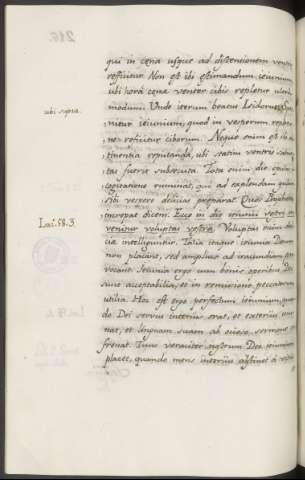 216.
qui in cena usque ad distentionem ventris
reficitur. Non est ibi estimandum ieiunium
ubi hora cena venter cibis repletur ultra
modum. Unde iterum beatus Isidorus:
ubi supra.
nitur ieiunium, quod in vesperum reple-
ne reficitur ciborum. Neque enim est abs-
tinentia reputanda, ubi statim ventris satie-
tas fuerit subsecuta. Tota enim die
copitationes ruminat, qui ad explendam gulam
sibi vespere delicias præparat. Quos Propheta
Isai. 58. 3.
increpat dicens. Ecce in die ieiunii vestri in-
venitur voluptas vestra. Voluptas enim deli-
ciæ intelliguntur. Talia itaque ieiunia Deum
non placant, sed amplius ad iracundiam pro-
vocant. Ieiunia ergo cum bonis operibus Deo
sunt acceptabilia, et in remissione peccatorum
utilia. Hoc est ergo perfectum ieiunium, quan-
do Dei servus interius orat, et exterius ieiu-
nat, et linguam suam ab ocioso sermone re-
frenat. Tunc veraciter nostrum Deo ieiunium
placet, quando mens interius abstinet a vitiis